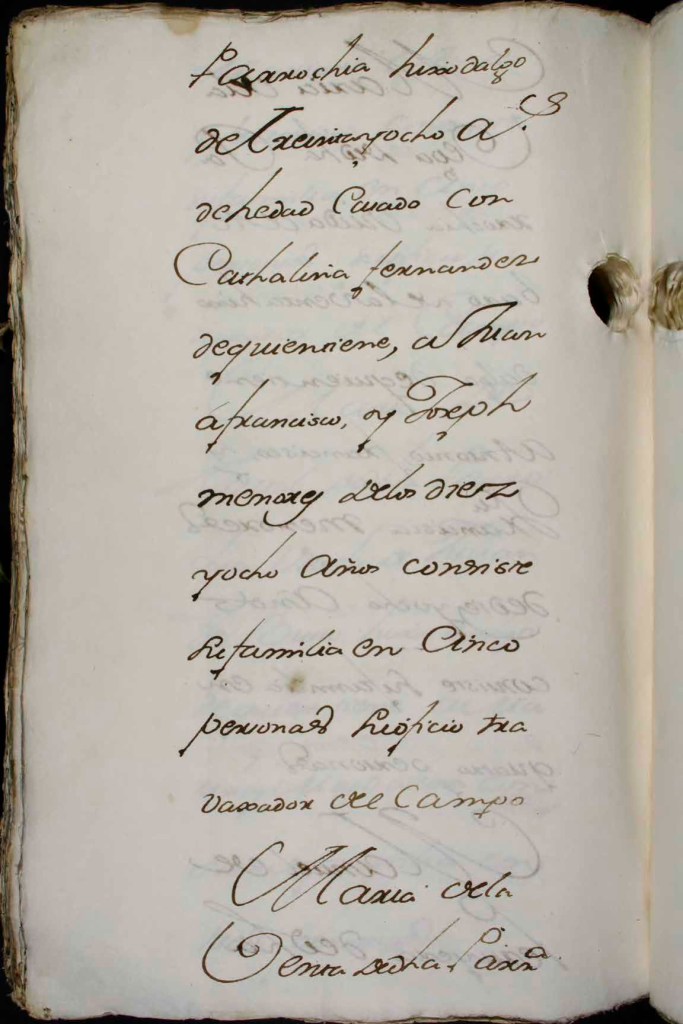 Parrochia hixodalgo
de Treintayocho a.s
dehedad Casado con
Cathalina fernandez
dequientiene, a Juan
afrancisco, y Joseph
menores delos diez
yocho Años consiste
sufamilia en Cinco
personas suoficio tra
vaxador del Campo
Maria dela
Venta dedha Parr.a